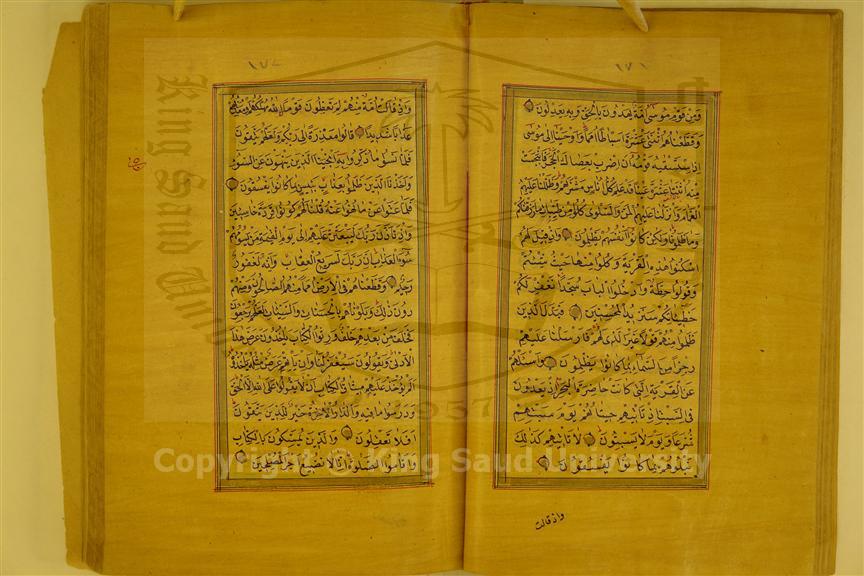 ١٧١
ومن قوم موسى امة يهدون بالحق وبه يعدلون
وقطعناهم اثنتي عشرة اسباطا امما واوحينا الى موسى
اذ استسقيه قومه ان اضرب بعصاك الحجر فانبجست
منه اثنتا عشرة عينا قد علم كل اناس مشربهم وظللنا عليهم
الغمام وانزلنا عليهم المن والسلوى كلوا من طيبات ما رزقناكم
وما ظلمونا ولكن كانوا انفسهم يظلمون واذ قيل لهم
اسكنوا هذه القرية وكلوا منها حيث شئتم
وقولوا حطة وادخلوا الباب سجدا نغفر لكم
خطيئاتكم سنزيد المحسنين فبدل الذين
ظلموا منهم قولا غير الذي قيل لهم فارسلنا عليهم
رجزا من السماء بما كانوا يظلمون واسئلهم
عن القرية التي كانت حاضرة البحر اذ يعدون
في السبت اذ تاتيهم حيتانهم يوم سبتهم
شرعا ويوم لا يسبتون لا تاتيهم كذلك
نبلوهم بما كانوا يفسقون
واذ قالت
واذ قالت امة منهم لم تعظون قوما الله مهلكهم او معذبهم
عذابا شديدا قالوا معذرة الى ربكم ولعلهم يتقون
فلما نسوا ما ذكروا به انجينا الذين ينهون عن السوء
واخذنا الذين ظلموا بعذاب بئيس بما كانوا يفسقون
فلما عتوا عن ما نهوا عنه قلنا لهم كونوا قردة خاسئين
واذ تاذن ربك ليبعثن عليهم الى يوم القيمة من يسومهم
سوء العذاب ان ربك لسريع العقاب وانه لغفور
رحيم وقطعناهم في الارض امما منهم الصالحون ومنهم
دون ذلك وبلوناهم بالحسنات والسيئات لعلهم يرجعون
فخلف من بعدهم خلف ورثوا الكتاب ياخذون عرض هذا
الادنى ويقولون سيغفر لنا وان ياتهم عرض مثله ياخذوه
الم يؤخذ عليهم ميثاق الكتاب ان لا يقولوا على الله الا الحق
ودرسوا ما فيه والدار الاخرة خير للذين يتقون
افلا تعقلون والذين يمسكون بالكتاب
واقاموا الصلوة انا لا نضيع اجر المصلحين
King Saud University
1957
Copyright © King Saud University